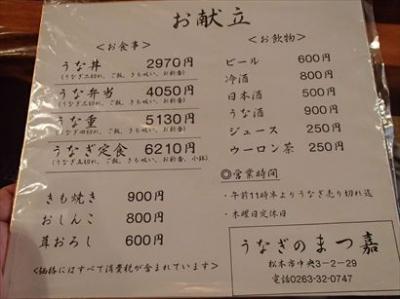 お献立
<お食事>
うな丼 2970円
(うなぎ三切れ、ご飯、きも吸い、お新香)
うな弁当 4050円
うな重 5130円
(うなぎ四切れ、ご飯、きも吸い、お新香)
うなぎ定食 6210円
(うなぎ五切れ、ご飯、きも吸い、お新香、小鉢)
きも焼き 900円
おしんこ 800円
茸おろし 600円
<価格にはすべて消費税が含まれています>
<お飲物>
ビール 600円
冷酒 800円
日本酒 500円
うな酒 900円
ジュース 250円
ウーロン茶 250円
◎営業時間
・午前11時半よりうなぎ売り切れ迄
・水曜日定休日
うなぎのまつ嘉
松本市中央3-2-29
電話0263-32-0747